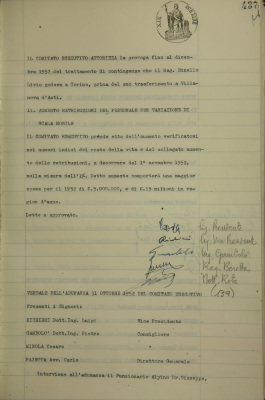 IL COMITATO ESECUTIVO AUTORIZZA la proroga fino al dicem-
bre 1952 del trattamento di contingenza che il Rag. Binello
Livio godeva a Torino, prima del suo trasferimento a Villa-
nova d'Asti.
II. ADEGUATO RETRIBUZIONI DEL PERSONALE PER VARIAZIONE DI
SCALA MOBILE
IL COMITATO ESECUTIVO prende atto dell'aumento verificatosi
nei numeri indici del costo della vita e del collegato aumen-
to delle retribuzioni, a decorrere dal 1° novembre 1952,
nella misura dell'2%. Detto aumento comporterà una maggior
spesa per il 1952 di L.3.000.000, e di L.19 milioni in ragio-
ne d'anno.
Letto e approvato.
Ing. Presidente
Ing. Vice Presidente
Rag. Boretti
Dott. Rota
(139)
VERBALE DELL'ADUNANZA 31 OTTOBRE 1952 DEL COMITATO ESECUTIVO
Presenti i Signori:
Dott.Ing. Luigi Vice Presidente
Dott.Ing. Pietro Consigliere
Cesare "
Avv. Carlo Direttore Generale
Interviene all'adunanza il Funzionario Alpino Dr.Giuseppe,